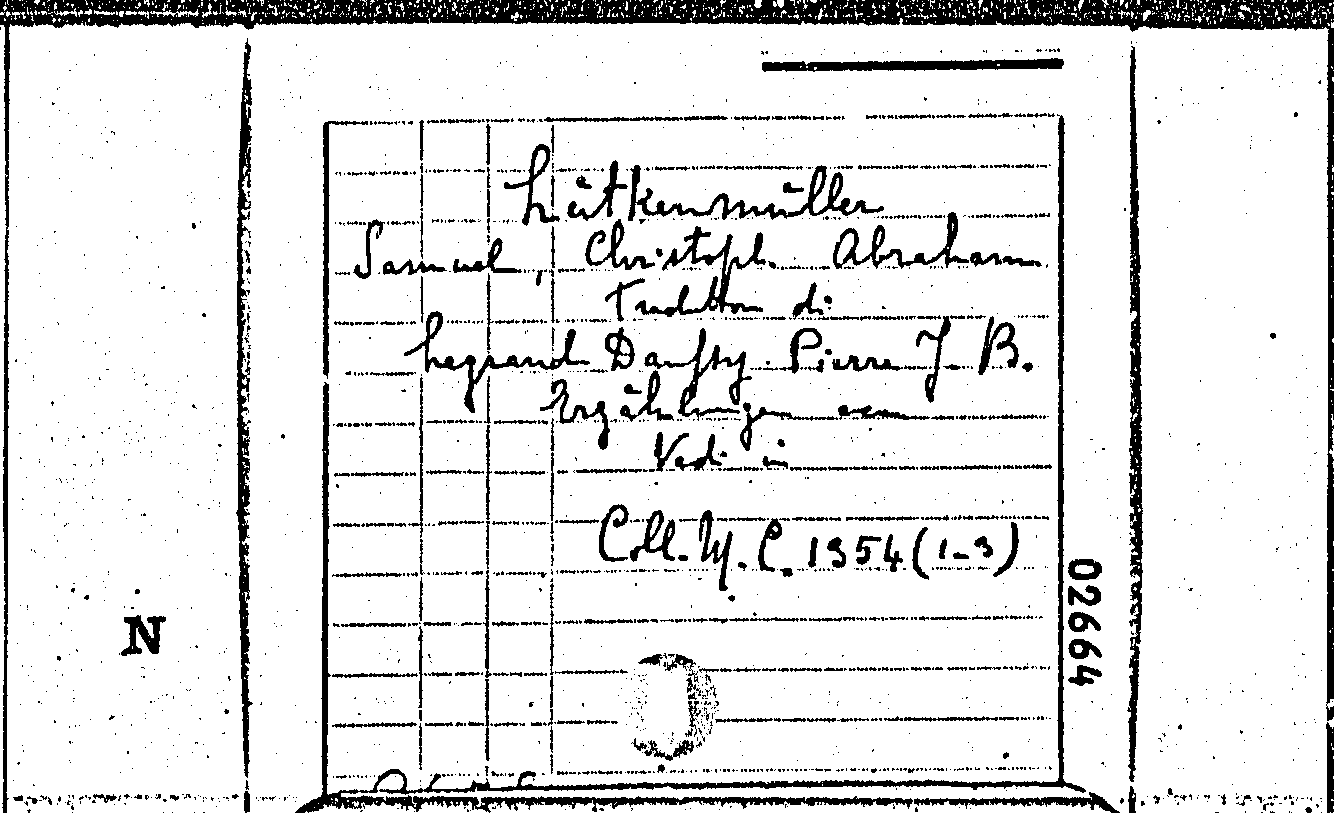 Lütkenmüller
Samuel, Christoph. Abraham
Traduttore di
Legrand Daussy. Pierre J. B.
Erzählungen aus
Vedi in
Coll. M. C. 1954 (1-3)
02664
N